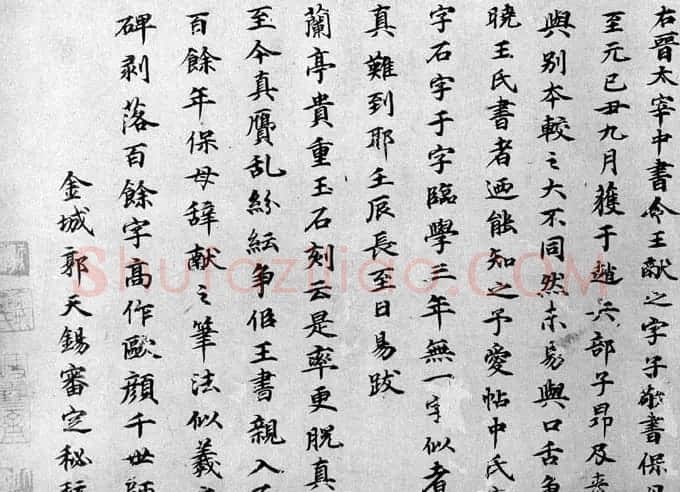 右晉太宰中書令王獻之字子敬書保
至元己丑九月獲于趙兵部子昂及
與別本較之大不同然未易與口舌爭
曉王氏書者迺能知之予愛帖中氏
字石字于字臨學三年無一字似者
真難到耶壬辰長至日易跋
蘭亭貴重玉石刻云是率更脫真
至今真贗乱紛紜争伹王書親入
百餘年保母辞獻之筆法似羲之
碑剥落百餘字高作歐顔千世師
金城郭天錫審定秘
Shufaziliao.COM